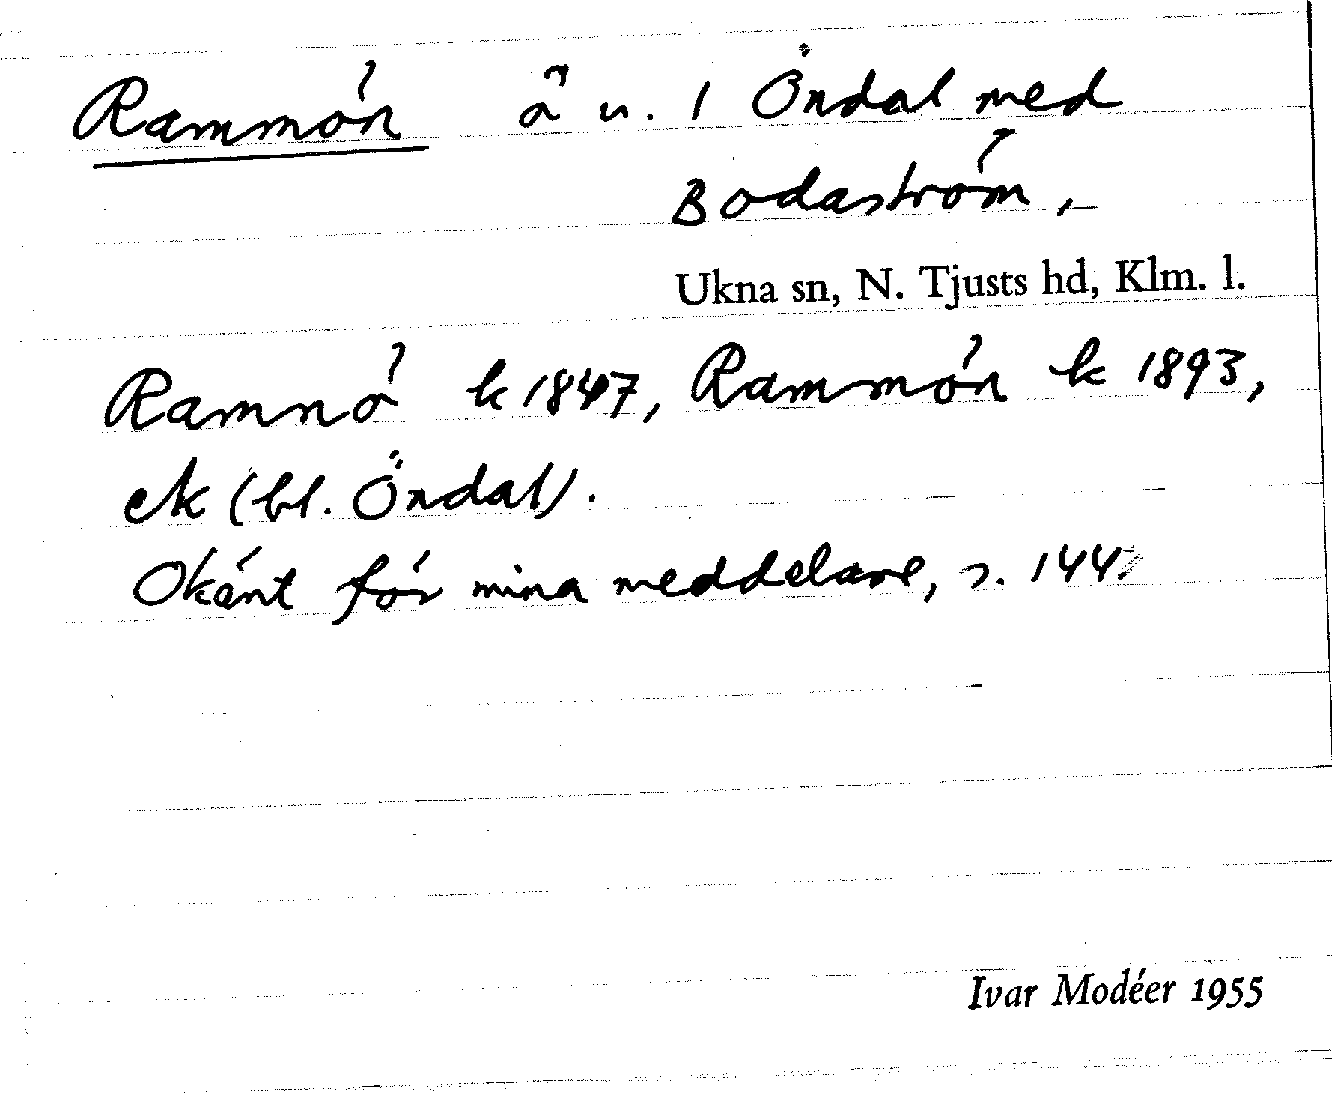 Rammön ä u. 1 Öndal med
Bodaström,
Ukna sn, N. Tjusts hd, Klm. l.
Ramnö k 1847, Rammön k 1893,
ek (bl. Öndal).
Okänt för mina meddelare, s. 144
Ivar Modéer 1955